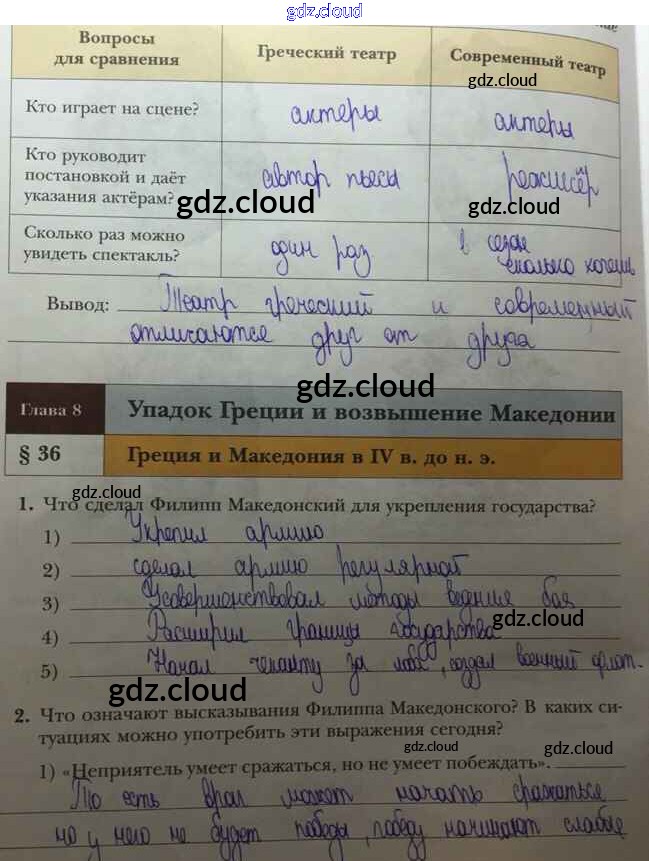 gdz.cloud
Вопросы для сравнения Греческий театр Современный театр
gdz.cloud
Кто играет на сцене? актеры актеры
Кто руководит постановкой и даёт указания актёрам? автор пьесы режисёр
gdz.cloud gdz.cloud
Сколько раз можно увидеть спектакль? один раз в сезон сколько хочешь
Вывод: Театр греческий и современный
отличаются друг от друга
gdz.cloud
Глава 8 Упадок Греции и возвышение Македонии
§ 36 Греция и Македония в IV в. до н. э.
gdz.cloud
1. Что сделал Филипп Македонский для укрепления государства?
1) Укрепил армию
2) сделал армию регулярной
3) Усовершенствовал методы ведения боя
4) Расширил границы государства
gdz.cloud
5) Начал чеканку , создал военный флот.
gdz.cloud
2. Что означают высказывания Филиппа Македонского? В каких си-
туациях можно употребить эти выражения сегодня?
gdz.cloud gdz.cloud
1) «Неприятель умеет сражаться, но не умеет побеждать».
gdz.cloud
То есть враг может начать сражаться
но у него не будет победы, победу начинают слабые